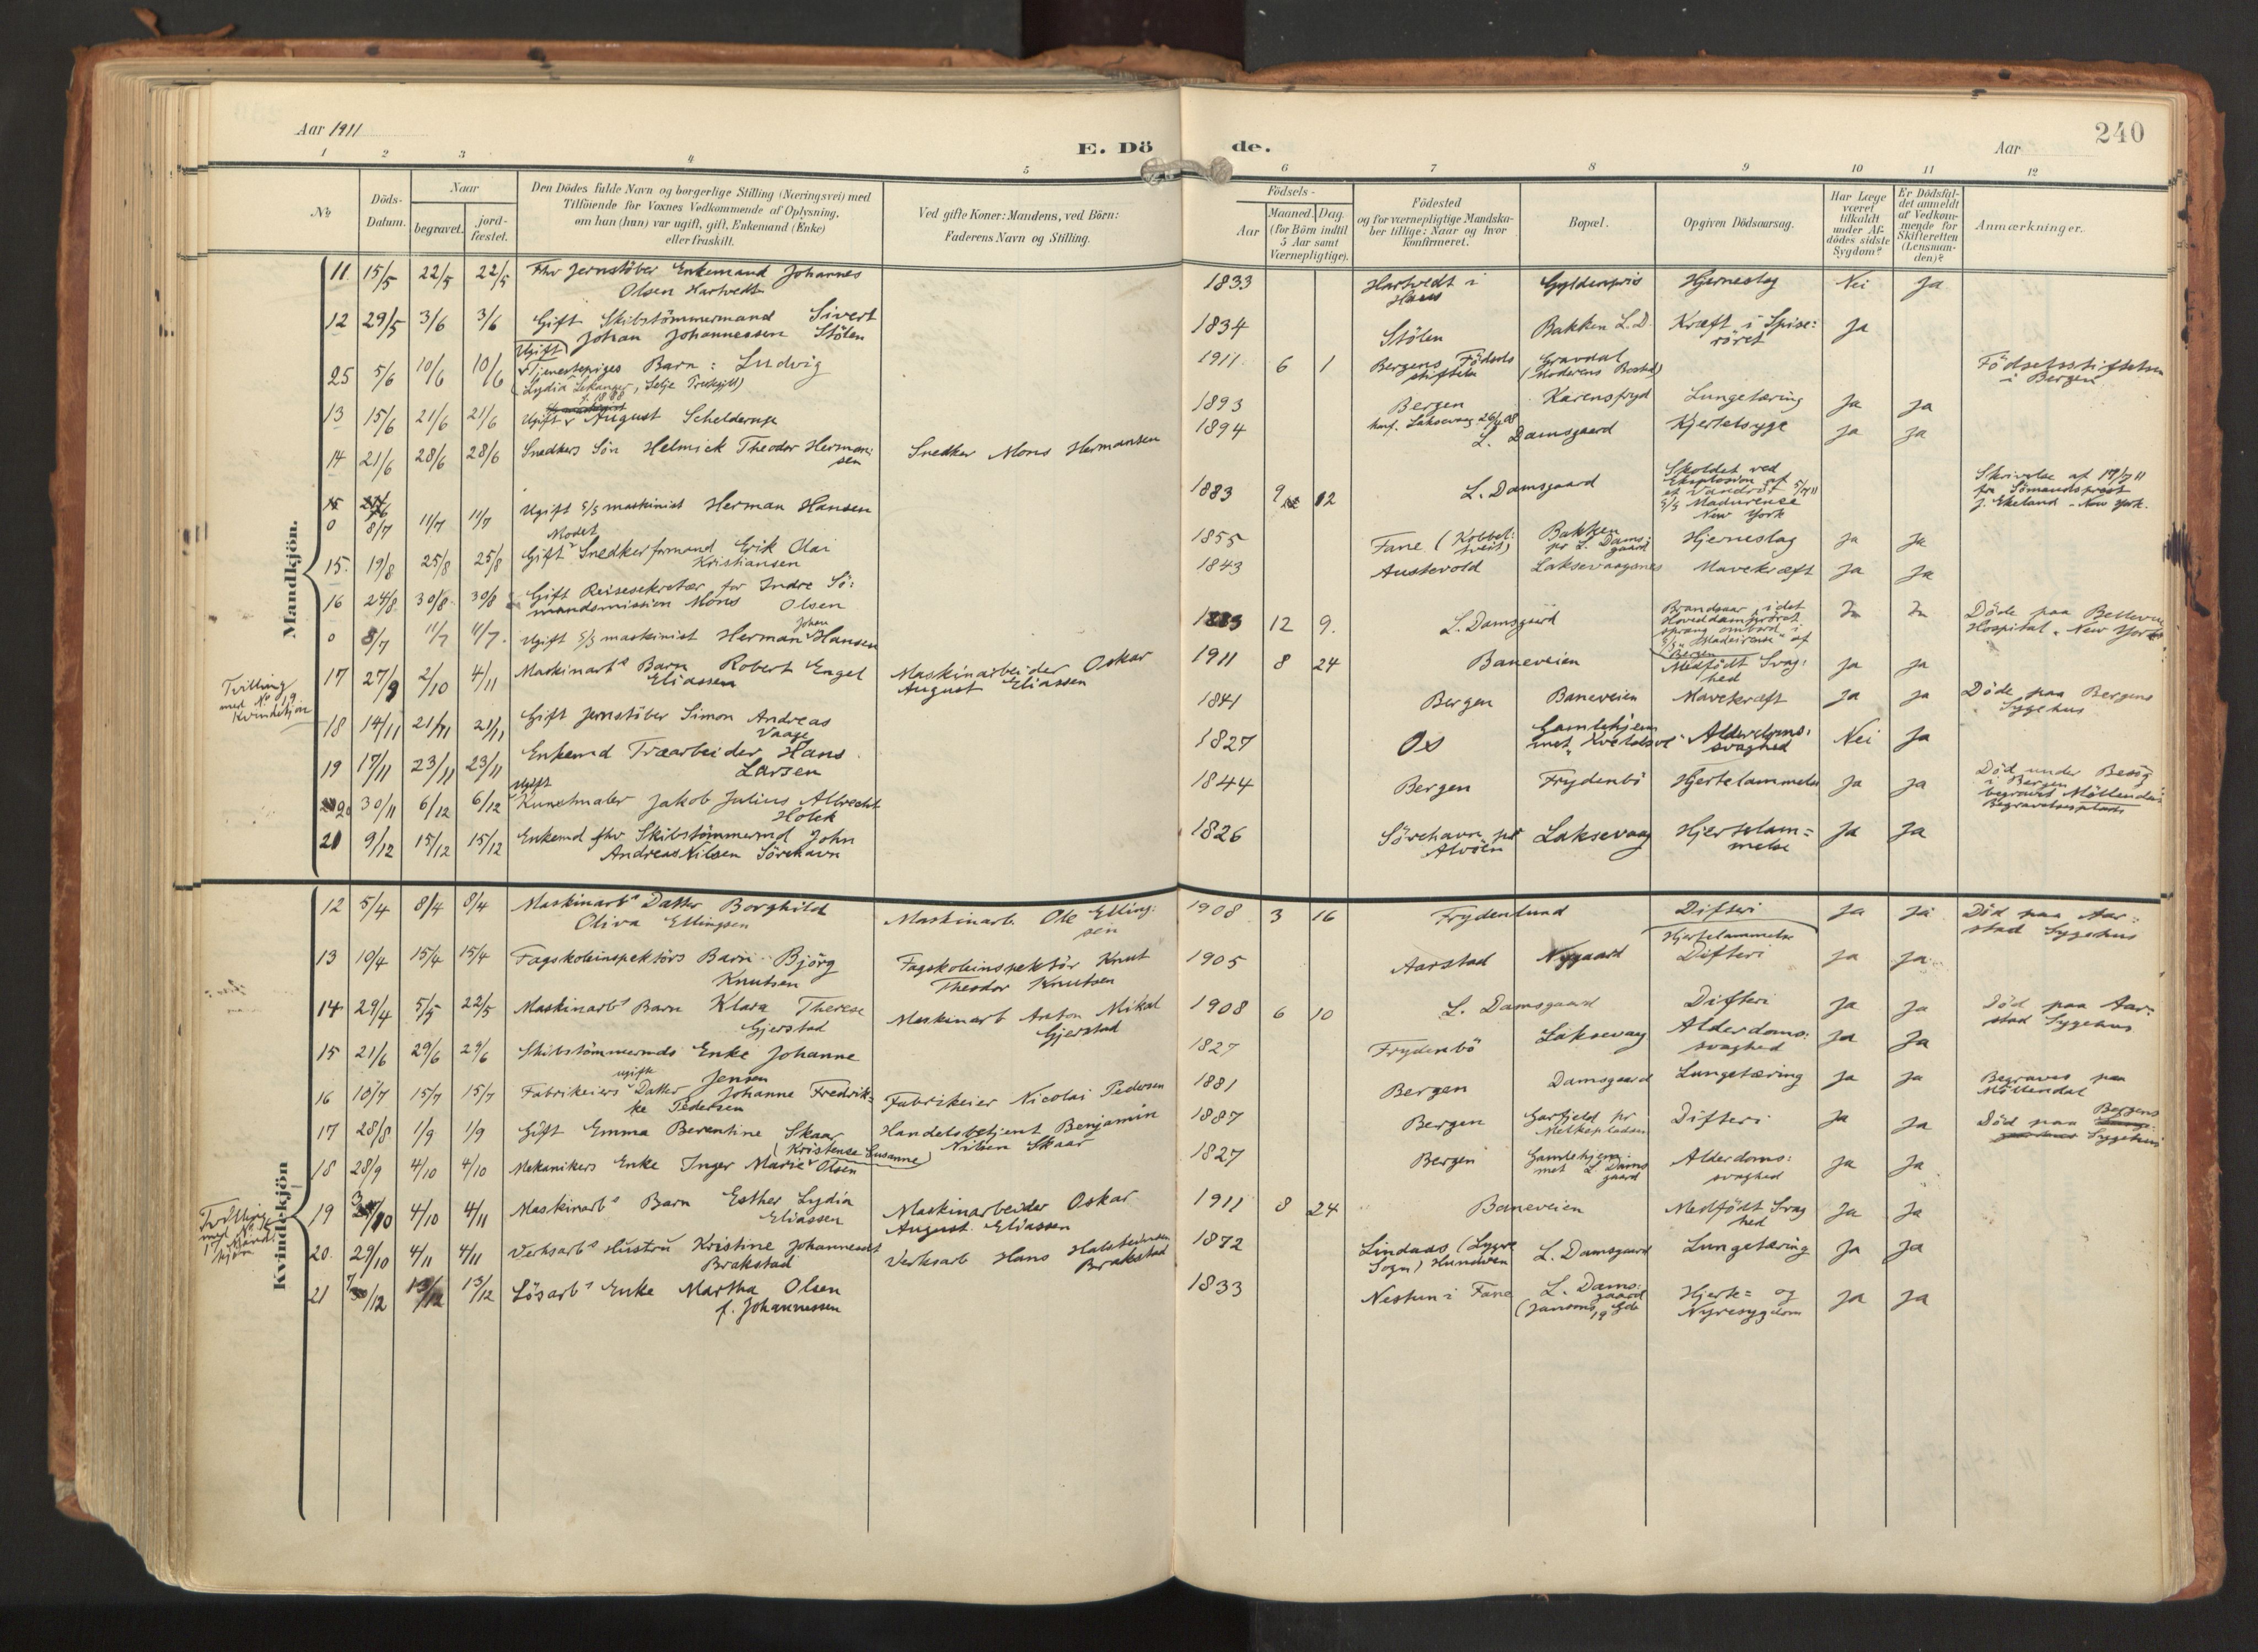 Aar 1911
E. Döde.
Aar
240
1 2 3 4 5 6 7 8 9 10 11 12
No
Döds-Datum.
Naar
begravet.
jord-fæstet.
Den Dödes fulde Navn og borgerlige Stilling (Næringsvei) med
Tilföiende for Voxnes Vedkommende af Oplysning,
om han (hun) var ugift, gift, Enkemand (Enke)
eller fraskilt.
Ved gifte Koner: Mandens, ved Börn:
Faderens Navn og Stilling.
Födsels-
Aar
Maaned. Dag.
(for Börn indtil
5 Aar samt
Værnepligtige).
Födested
og for værnepligtige Mandska-
ber tillige: Naar og hvor
konfirmeret.
Bopæl.
Opgiven Dödsaarsag.
Har Læge
været
tilkaldt
under Af-
dödes sidste
Sygdom?
Er Dödsfal-
det anmeldt
af Vedkom-
mende for
Skifteretten
(Lensman-
den)?
Anmærkninger.
Mandkjön.
11 15/5 22/5 22/5 Fhv Jernstöber Enkemand Johannes 1833 Hartvedt i Gyldenpris Hjerneslag Nei Ja
Olsen Hartvedt Haus
12 29/5 3/6 3/6 Gift Skibstömmermand Sivert 1834 Stölen Bakken L.D. Kræft i Spise: Ja
Johan Johannessen Stölen röret
Ugift
25 5/6 10/6 10/6 Tjenestepiges Barn: Ludvig 1911 6 1 Bergens Födsels Gravdal Födselsstiftelsen
(Lydia Lekanger, Selje Prestgjeld) stiftelse (Moderens Bosted) i Bergen
f. 1888
13 15/6 21/6 21/6 Ugift August Schelderup 1893 Bergen Karensfryd Lungetæring Ja Ja
konf. Laksevaag 26/4 08
14 21/6 28/6 28/6 Snedkers Sön Helmick Theodor Herman: Snedker Mons Hermansen 1894 L. Damsgaard Kjertelsyge Ja Ja
sen
15
0 8/7 11/7 11/7 Ugift S/S maskinist Herman Hansen 1883 9 12 L. Damsgaard Skoldet ved Skrivelse af 17/7 11
Eksplosion af fra Sömandsprest
et Vandrör 5/7 11 J. Ekeland - New York.
S/S Madurense
New York
Modet
15. 19/8 25/8 25/8 Gift Snedkerformand Erik Olai 1855 Fane (Kobbel: Bakken Hjerneslag Ja Ja
Kristiansen tveit) pr L. Dams:
gaard
16 24/8 30/8 30/8 Gift Reisesekretær for Indre Sö: 1843 Austevold Laksevaagsnes Mavekræft Ja Ja
mandsmission Mons Olsen
Johan
0 8/7 11/7 11/7. Ugift S/S maskinist Herman Hansen 1883 12 9. L. Damsgaard Brandsaar, idet Döde paa Bellevue
Hoveddampröret Hospital, New York
sprang ombord i
S/S "Madeirense" af
Bergen
17 27/9 2/10 4/11 Maskinarb's Barn Robert Engel Maskinarbeider Oskar 1911 8 24 Baneveien Medfödt Svag: Ja Ja
Eliassen August Eliassen hed
Tvilling
med No 19
Kvindekjön
18 14/11 21/11 21/11 Gift Jernstöber Simon Andreas 1841 Bergen Baneveien Mavekræft Ja Ja Döde paa Bergens
Vaage Sygehus
19 17/11 23/11 23/11 Enkemd Træarbeider Hans 1827 Os Gamlehjem Alderdoms: Nei Ja
Larsen svaghed
Ugift
20 30/11 6/12 6/12 Kunstmaler Jakob Julius Albrecht 1844 Bergen Frydenbö Hjertelammelse Ja Ja Död under Besög
Holck i Bergen
begravet Möllendals
Begravelsesplads
21 9/12 15/12 15/12 Enkemd fhv Skibstömmermd John 1826 Sörehavn pr Laksevaag Hjertelam= Ja Ja
Andreas Nilsen Sörehavn Alvöen melse
Kvindekjön
12 5/4 8/4 8/4 Maskinarb's Datter Borghild Maskinarb. Ole Elling: 1908 3 16 Frydenlund Difteri Ja Ja Död paa Aar:
Oliva Ellingsen sen stad Sygehus
Hjertelammelse
13 10/4 15/4 15/4 Fagskoleinspektörs Barn Björg Fagskoleinspektör Knut 1905 Aarstad Nygaard Difteri Ja Ja
Knutsen Theodor Knutsen
14 29/4 5/5 22/5 Maskinarb's Barn Klara Therese Maskinarb Anton Mikal 1908 6 10 L. Damsgaard Difteri Ja Ja Död paa Aar:
Gjerstad Gjerstad stad Sygehus
15 21/6 29/6 29/6 Skibstömmermds Enke Johanne 1827 Frydenbö Laksevaag Alderdoms: Ja Ja
Jensen svaghed
ugifte
16 10/7 15/7 15/7 Fabrikeiers Datter Johanne Fredrik= Fabrikeier Nicolai Pedersen 1881 Bergen Damsgaard Lungetæring Ja Ja Begraves paa
ke Pedersen Möllendal
17 28/8 1/9 1/9 Gift Emma Berentine Skaar Handelsbetjent Benjamin 1887 Bergen Garfjeld pr Difteri Ja Ja Död paa Bergens
Nilsen Skaar Melkepladsen Sygehus
(Kristense Susanne)
18 28/9 4/10 4/10 Mekanikers Enke Inger Marie Olsen 1827 Bergen Gamlehjem: Alderdoms: Ja Ja
met L. Dams svaghed
gaard
19 3/10 4/10 4/11 Maskinarb's Barn Esther Lydia Maskinarbeider Oskar 1911 8 24 Baneveien Medfödt Svag Ja Ja
Eliassen August Eliassen hed
Tvilling
med No
17 Mand:
kjön
20. 29/10 4/11 4/11 Verksarb's Hustru Kristine Johannesdt Verksarb Hans Halstensen 1872 Lindaas (Lygre L. Damsgaard Lungetæring Ja Ja
Brakstad Brakstad Sogn) Hundven
21 7/12 13/12 13/12 Lösarb's Enke Martha Olsen 1833 Nestun i Fane L. Dams: Hjerte= og Ja Ja
f. Johannessen gaard Nyresygdom